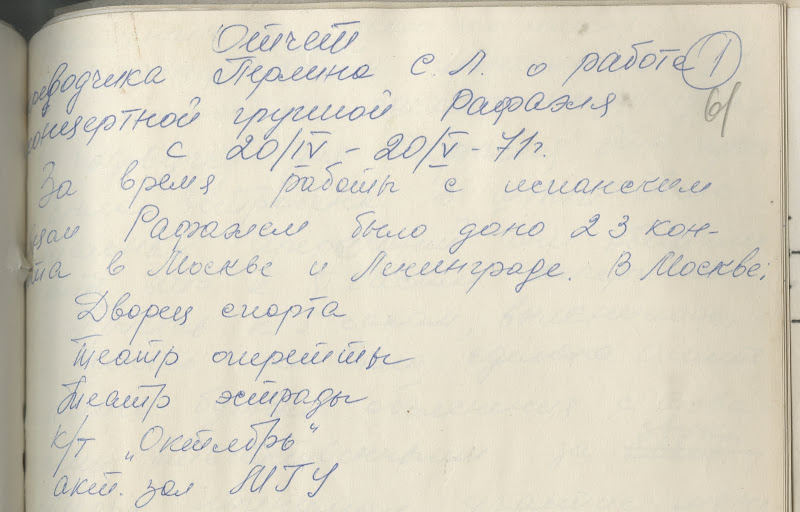 Отчет
еводчика Перлина С. Л. о работе 1
онцертной группой Рафаэля 61
с 20/IV - 20/V - 71г.
За время работы с испанским
цом Рафаэлем было дано 23 кон-
та в Москве и Ленинграде. В Москве:
Дворец спорта
театр оперетты
Театр эстрады
к/т „Октябрь"
акт. зал МГУ